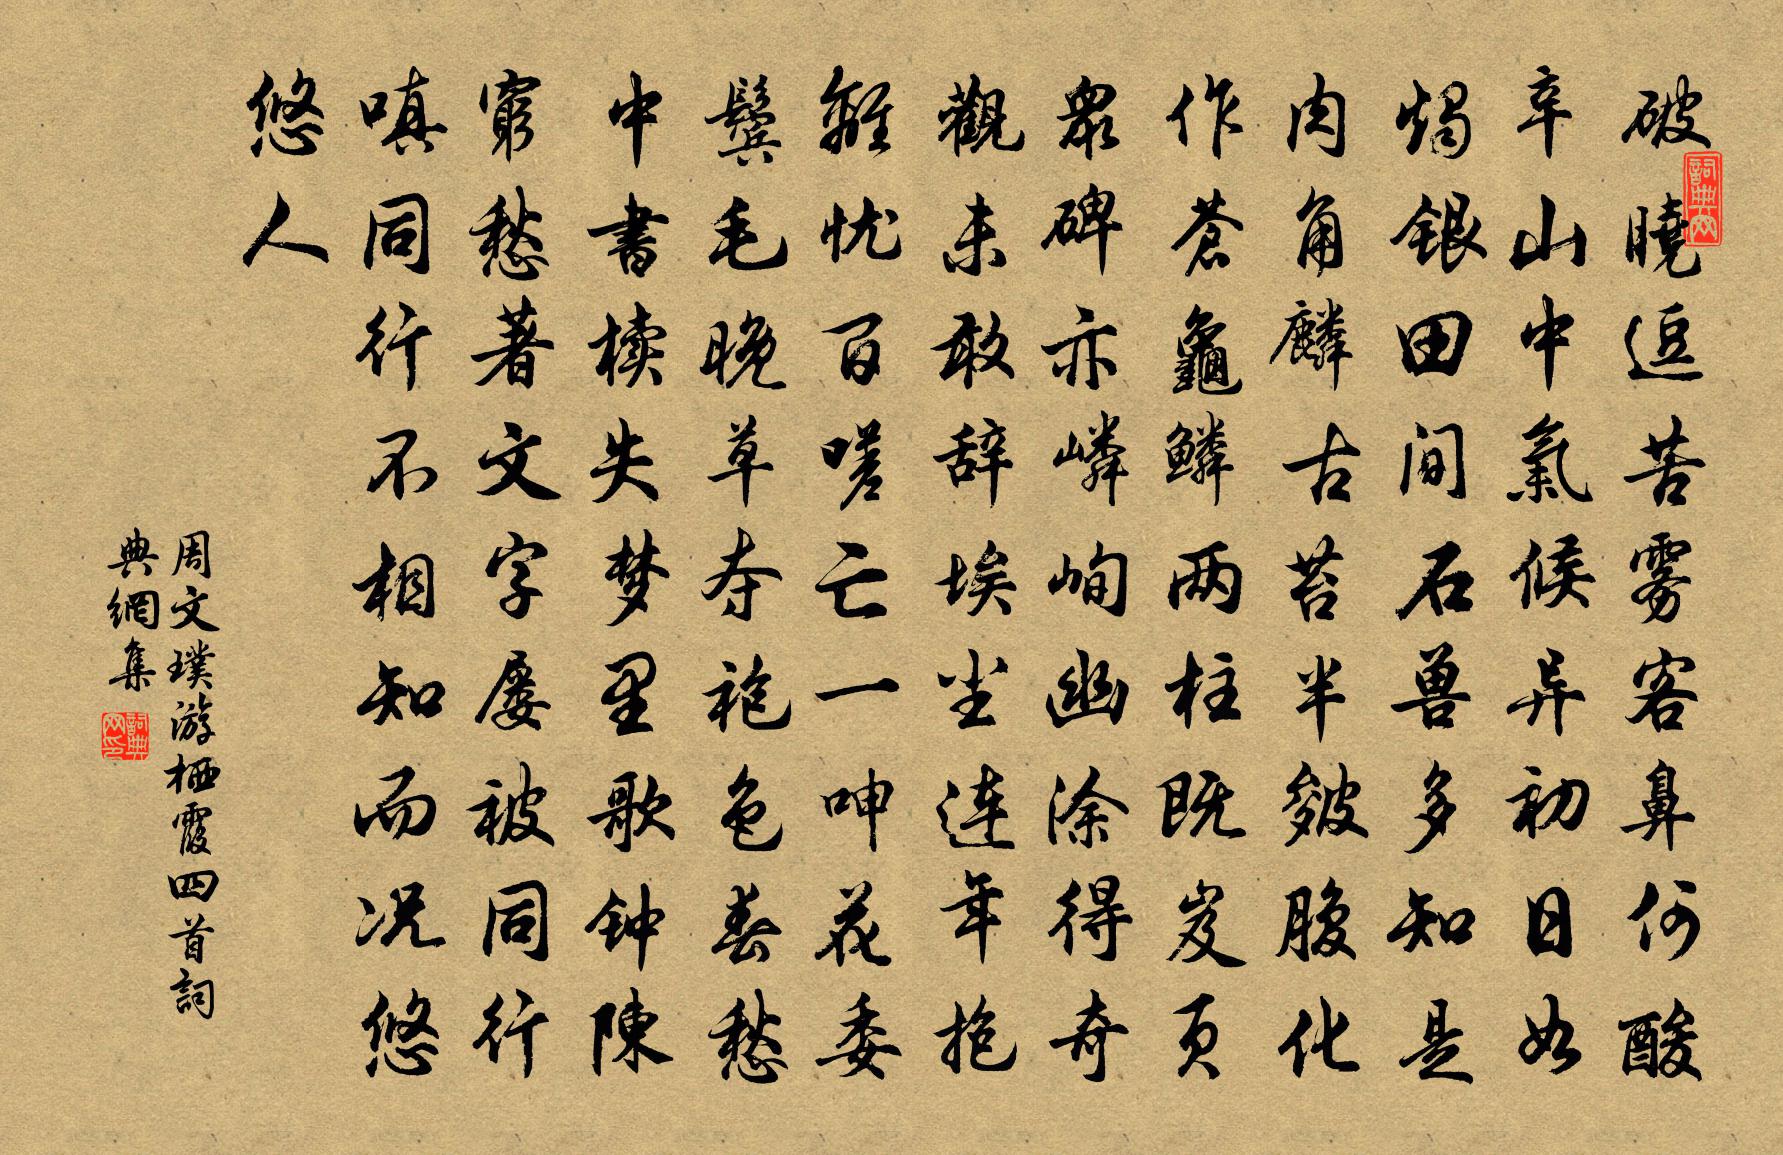 破曉逗苦雾客鼻何酸
辛山中氣候异初日如
燭银田间石兽多知是
肉角麟古苔半皴腹化
作苍龜鳞两柱既岌页
眾碑亦嶙峋幽涂得奇
觀未敢辞埃尘连年抱
難忧百嗟亡一呻花委
鬓毛晚草夺袍色春愁
中書牍失梦里歌钟陳
窮愁著文字屡被同行
嗔同行不相知而况悠
悠人
周文璞游栖霞四首詞
典網集
詞典网
詞典网印